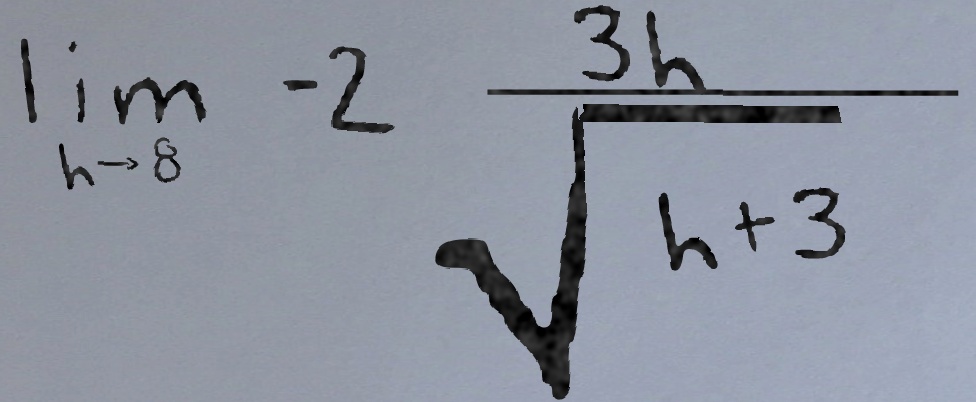 lim h→8 -2 \frac{3h}{\sqrt{h+3}}